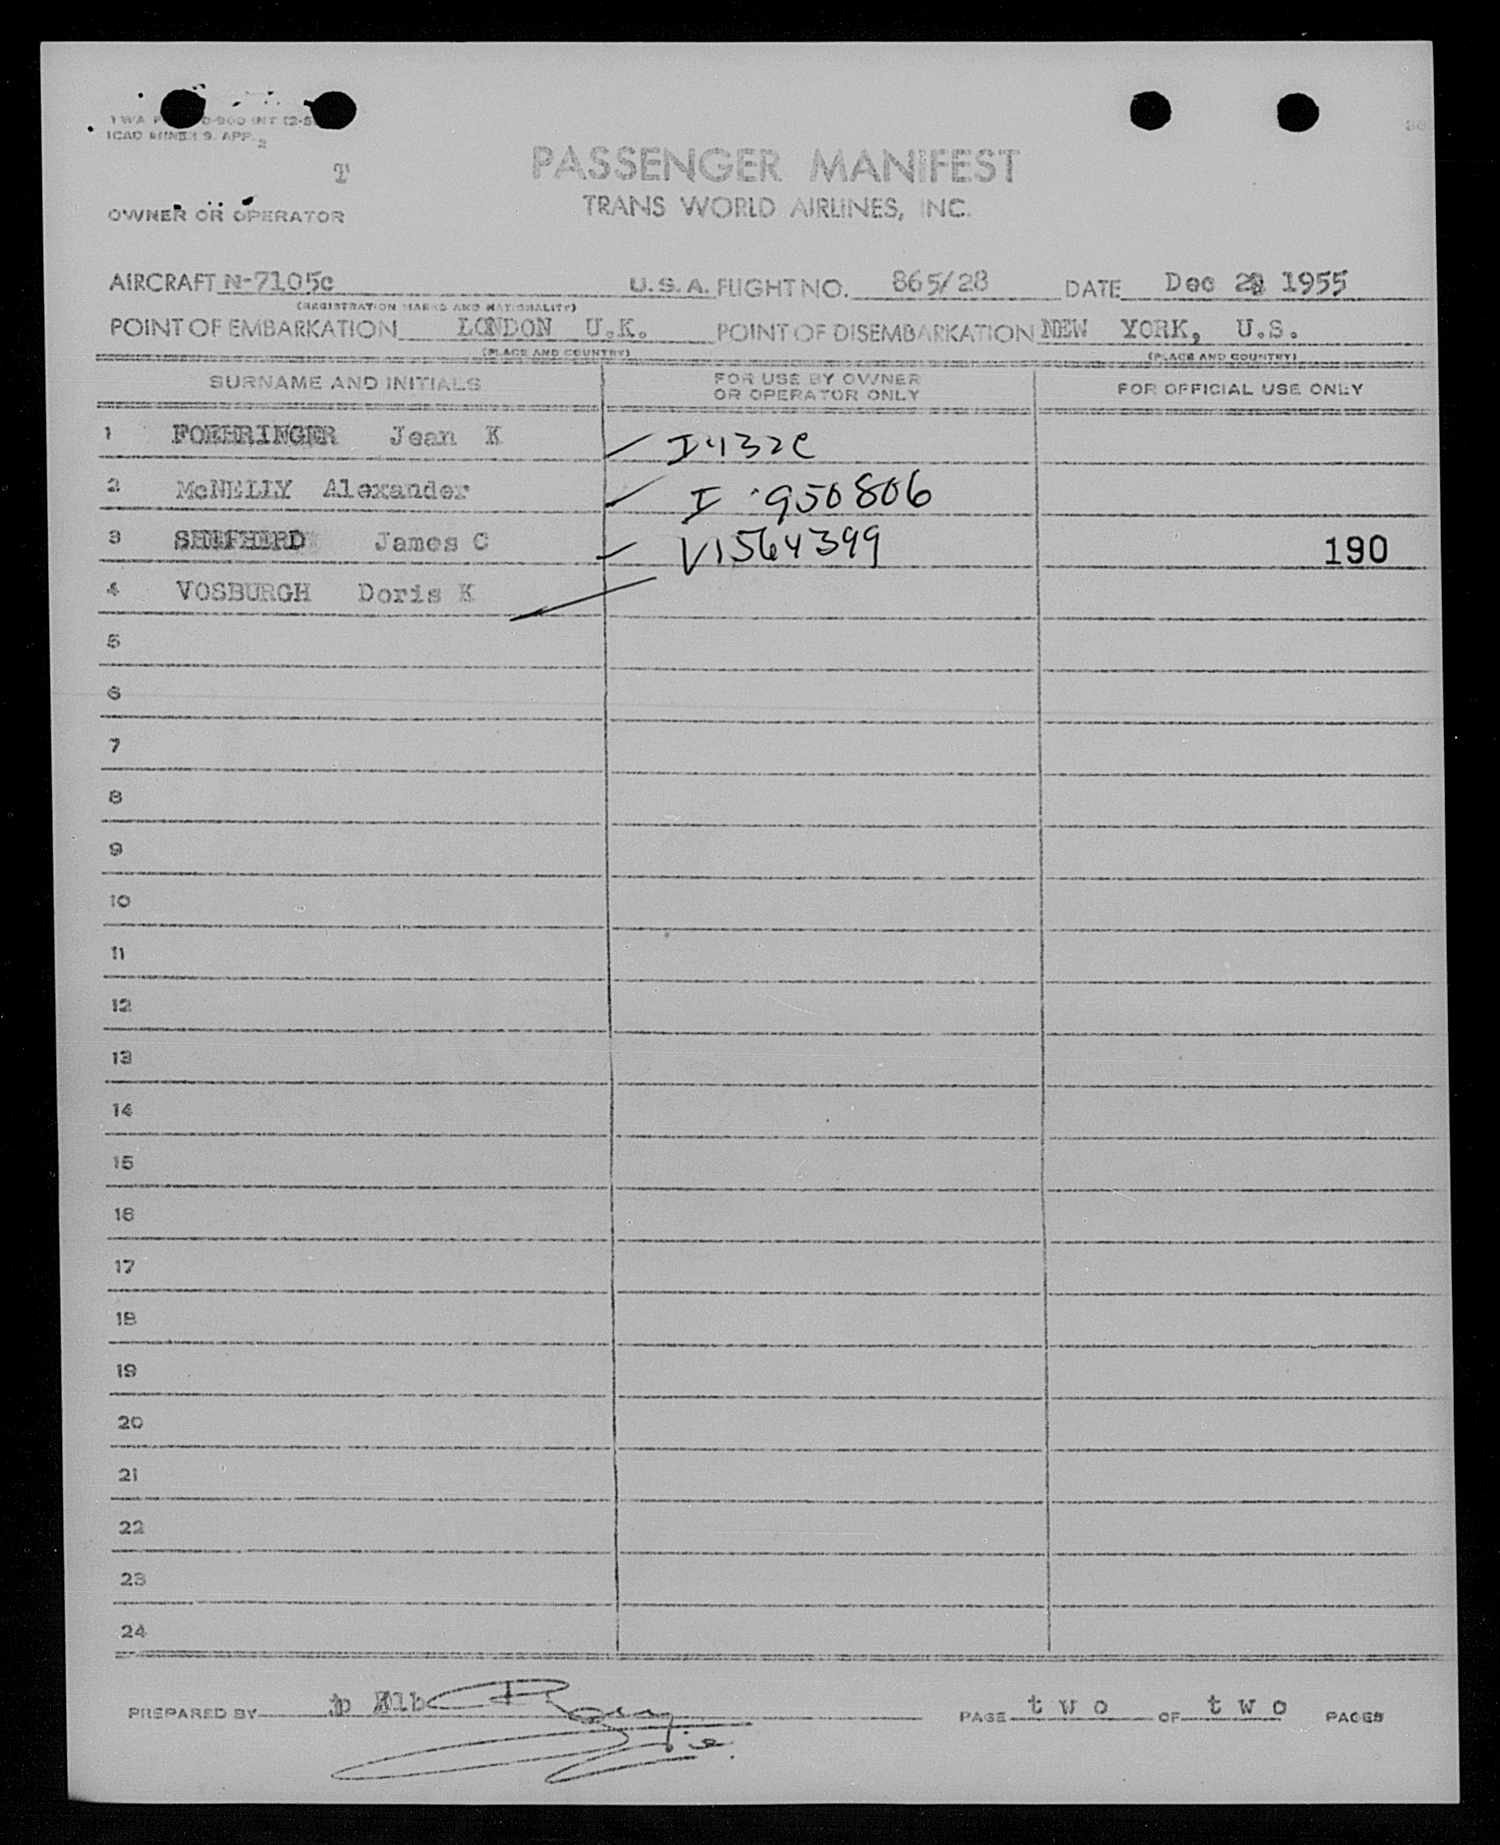 ICAO ANNEX 9. APP. 2
T
PASSENGER MANIFEST
TRANS WORLD AIRLINES, INC.
OWNER OR OPERATOR
AIRCRAFT N-7105c U.S.A. FLIGHT NO. 865/28 DATE Dec 1955
(REGISTRATION MARKS AND NATIONALITY)
POINT OF EMBARKATION LONDON U.K. POINT OF DISEMBARKATION NEW YORK, U.S.
(PLACE AND COUNTRY) (PLACE AND COUNTRY)
SURNAME AND INITIALS FOR USE BY OWNER OR OPERATOR ONLY FOR OFFICIAL USE ONLY
1 FOEHRINGER Jean K I432C
2 McNELLY Alexander I 950806
3 SHEPHERD James C V1564399 190
4 VOSBURGH Doris K
5
6
7
8
9
10
11
12
13
14
15
16
17
18
19
20
21
22
23
24
PREPARED BY PAGE two OF two PAGES